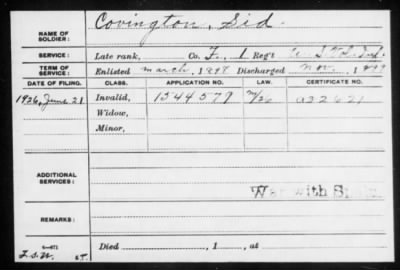 NAME OF SOLDIER: Covington, Sid.
SERVICE: Late rank, Co. F, 1 Reg't U.S.V. Inf.
TERM OF SERVICE: Enlisted March, 1898 Discharged Nov., 1899
DATE OF FILING. CLASS. APPLICATION NO. LAW. CERTIFICATE NO.
1926, June 21 Invalid, 1544579 a32621
Widow,
Minor,
ADDITIONAL SERVICES:
War with Spain.
REMARKS:
Died , 1 , at